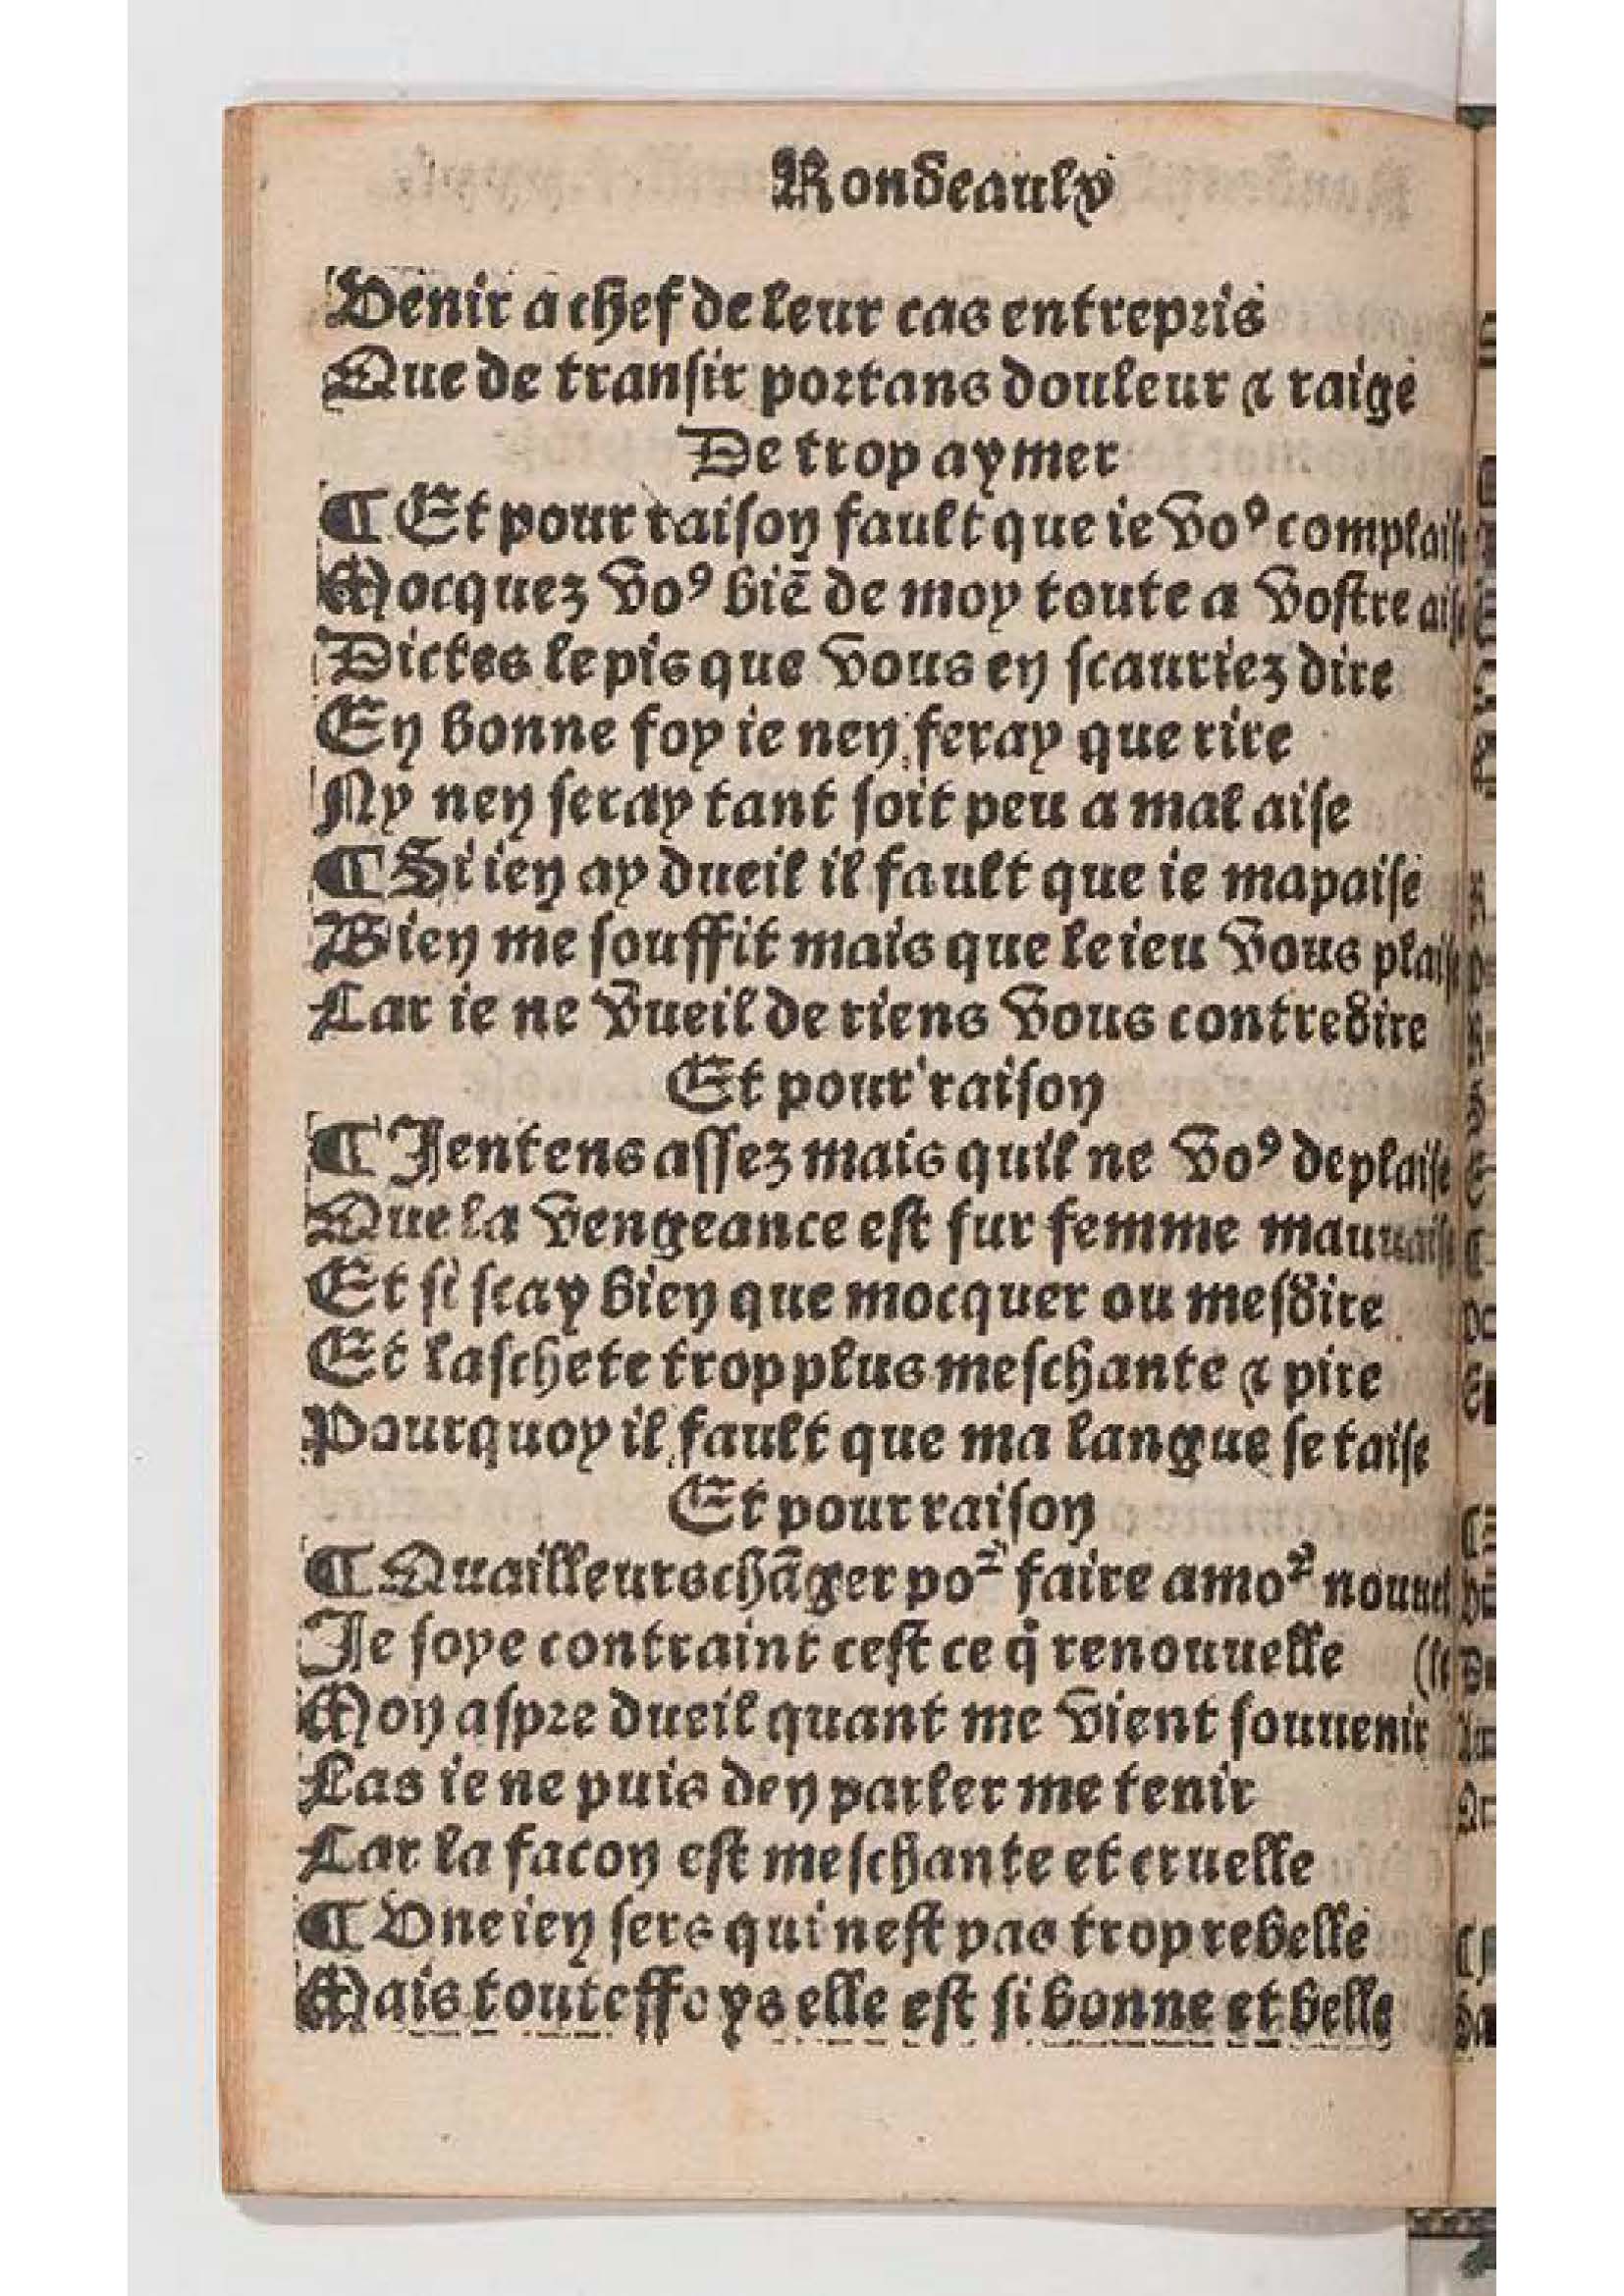 Rondeaulx
Venir a chef de leur cas entrepris
Que de transir portans douleur & raige
De trop aymer
¶ Et pour raison fault que ie voꝰ complaise
Mocquez voꝰ biē de moy toute a vostre aise
Dictes le pis que vous en scauriez dire
En bonne foy ie nen feray que rire
Ny nen seray tant soit peu a mal aise
¶ Si ien ay dueil il fault que ie mapaise
Bien me souffit mais que le ieu vous plaise
Car ie ne vueil de riens vous contredire
Et pour raison
¶ Jentens assez mais quil ne voꝰ deplaise
Que la vengeance est sur femme mauuaise
Et si scay bien que mocquer ou mesdire
Et laschete trop plus meschante & pire
Pourquoy il fault que ma langue se taise
Et pour raison
¶ Quailleurs chāger poꝛ faire amoꝛ nouuel
Je soye contraint cest ce q̇ renouuelle (le
Mon aspre dueil quant me vient souuenir
Las ie ne puis den parler me tenir
Car la facon est meschante et cruelle
¶ Vne ien sers qui nest pas trop rebelle
Mais touteffoys elle est si bonne et belle